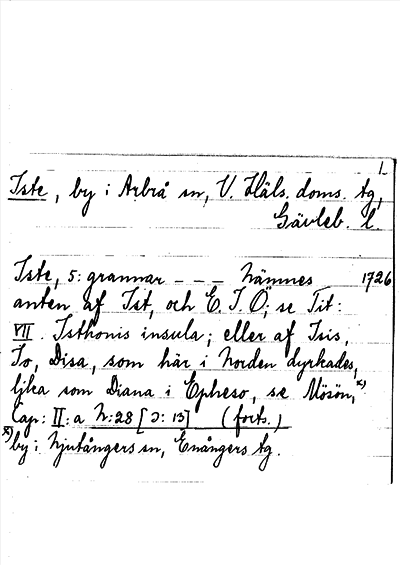 1.
Iste, by i Arbrå sn, V. Häls. doms. tg,
Gävleb. l.
Iste, 5: grannar - - - Nämnes 1726
anten af Ist, och E. I. Ö; se Tit:
VII. Isthonis insula; eller af Isis,
Io, Disa, som här i Norden dyrkades,
lika som Diana i Epheso, se Mösön,x)
Cap: II: a N:28 [ɔ: 13] (forts.)
x) by i Njutångers sn, Enångers tg.